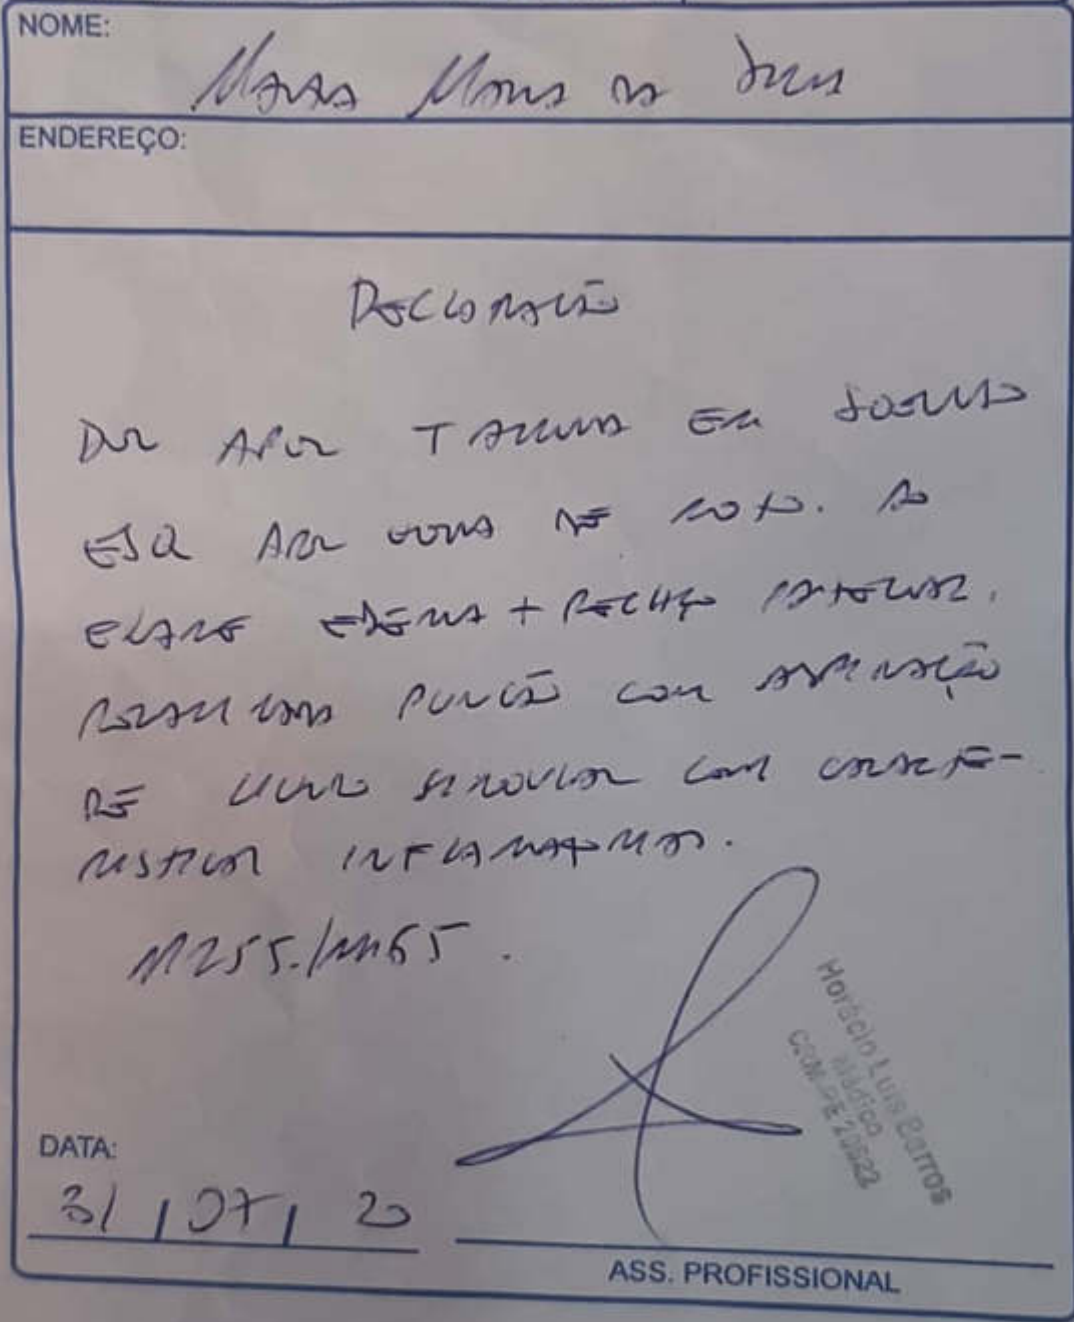 NOME:
Maria
ENDEREÇO:
DECLARAÇÃO
DOR APÓS TRAUMA EM JOELHO
ESQ APÓS QUEDA DE MOTO. AO
EXAME EDEMA + RECHAÇO PATELAR.
REALIZADA PUNÇÃO COM ASPIRAÇÃO
DE LIQUIDO SINOVIAL COM CARACTE-
RISTICAS INFLAMATORIAS.
M255./M65.
Horácio Luis Barros
Médico
CRM-PE
DATA:
31/07/20
ASS. PROFISSIONAL